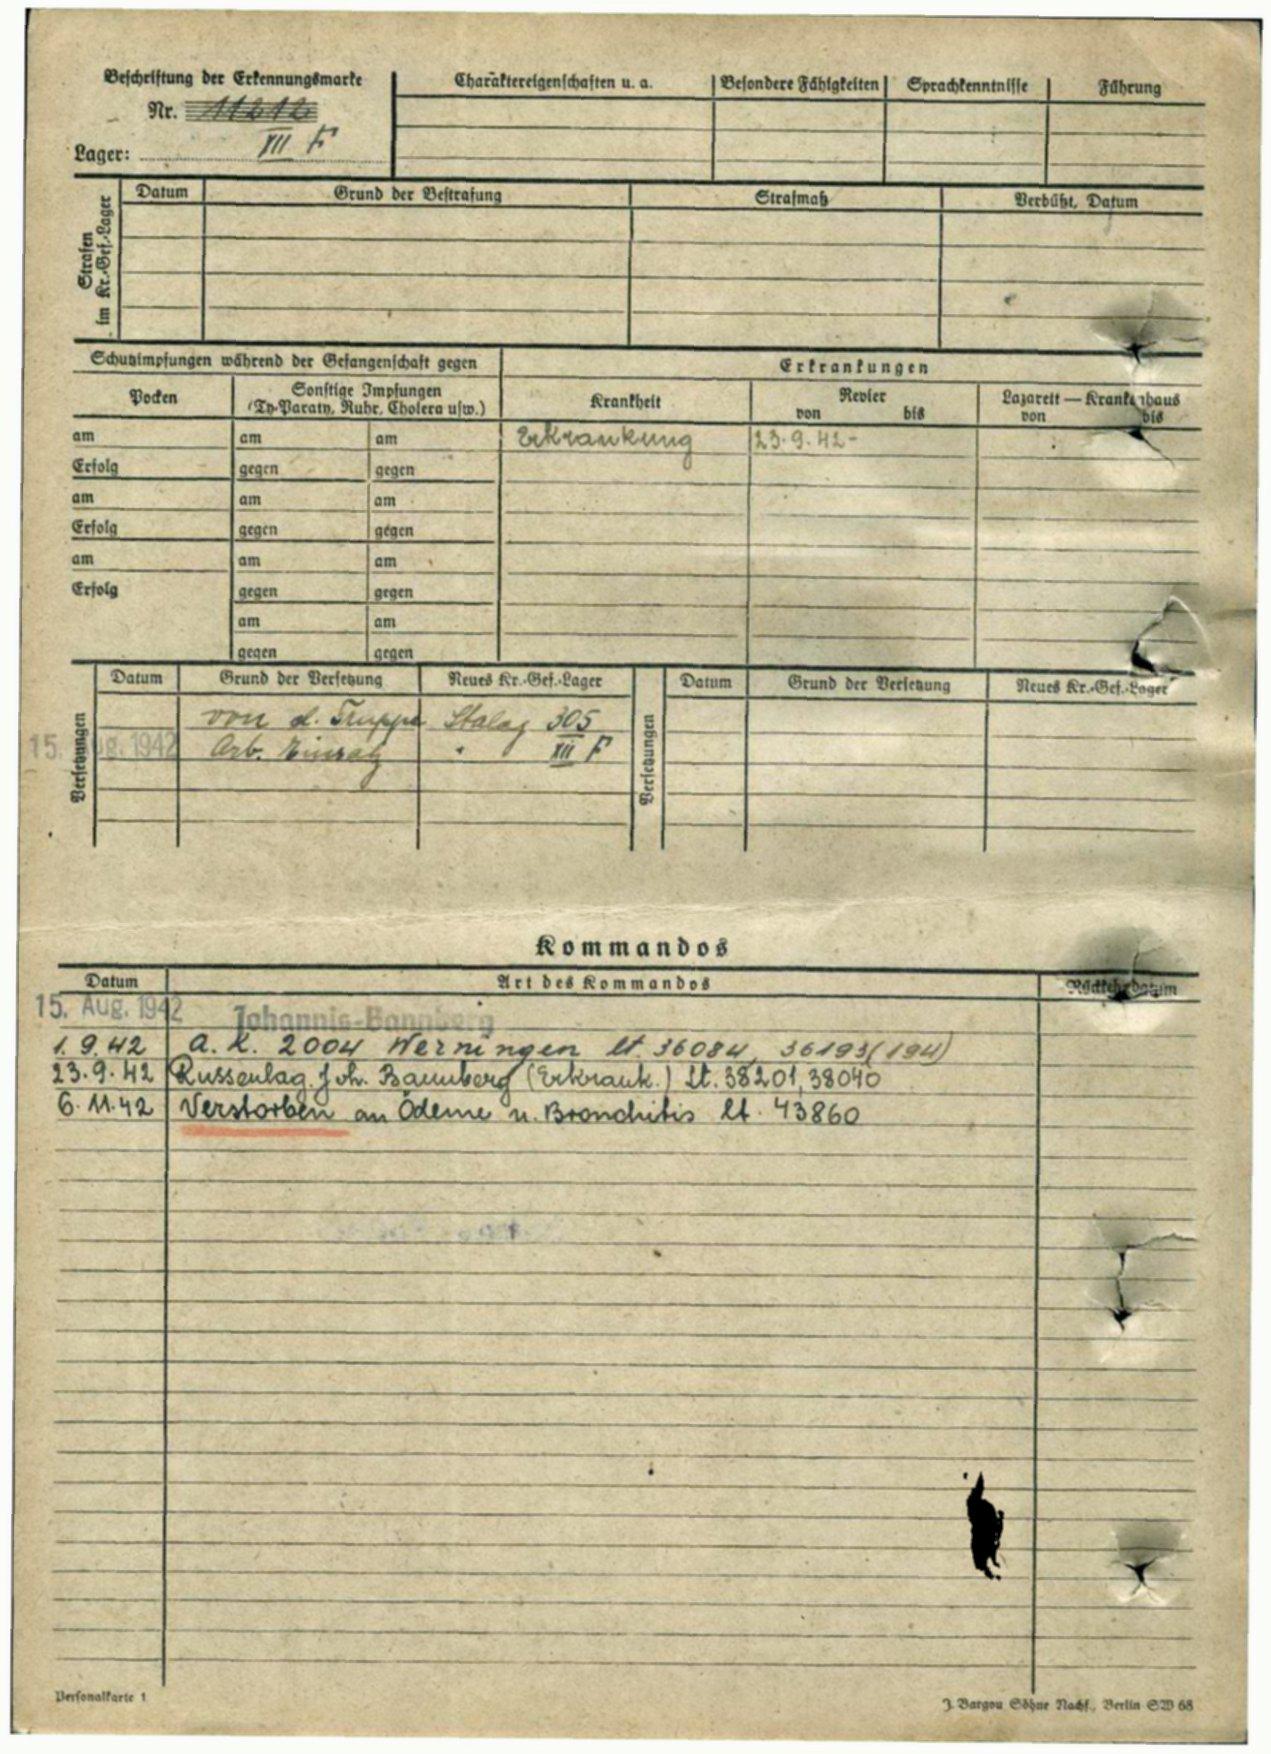 Beschriftung der Erkennungsmarke
Nr. 11212
Lager: XII F
Charaktereigenschaften u. a. Besondere Fähigkeiten Sprachkenntnisse Führung
Strafen im Kr.-Gef.-Lager
Datum Grund der Bestrafung Strafmaß Verbüßt, Datum
Schutzimpfungen während der Gefangenschaft gegen Erkrankungen
Pocken Sonstige Impfungen (Ty-Paraty, Ruhr, Cholera usw.) Krankheit Revier von bis Lazarett — Krankenhaus von bis
am am am Erkrankung 23.9.42-
Erfolg gegen gegen
am am am
Erfolg gegen gegen
am am am
Erfolg gegen gegen
am am
gegen gegen
Versetzungen
Datum Grund der Versetzung Neues Kr.-Gef.-Lager
von d. Truppe Stalag 305
15. Aug. 1942 Arb. Einsatz " XII F
Versetzungen
Datum Grund der Versetzung Neues Kr.-Gef.-Lager
Kommandos
Datum Art des Kommandos Rückkehrdatum
15. Aug. 1942 Johannis-Bannberg
1.9.42 A.K. 2004 Merningen lt. 36084, 36193(194)
23.9.42 Russenlag. Joh. Bannberg (Erkrank.) Lt. 38201, 38040
6.11.42 Verstorben an Ödeme u. Bronchitis lt. 43860
Personalkarte 1
J. Bargou Söhne Nachf., Berlin SW 68